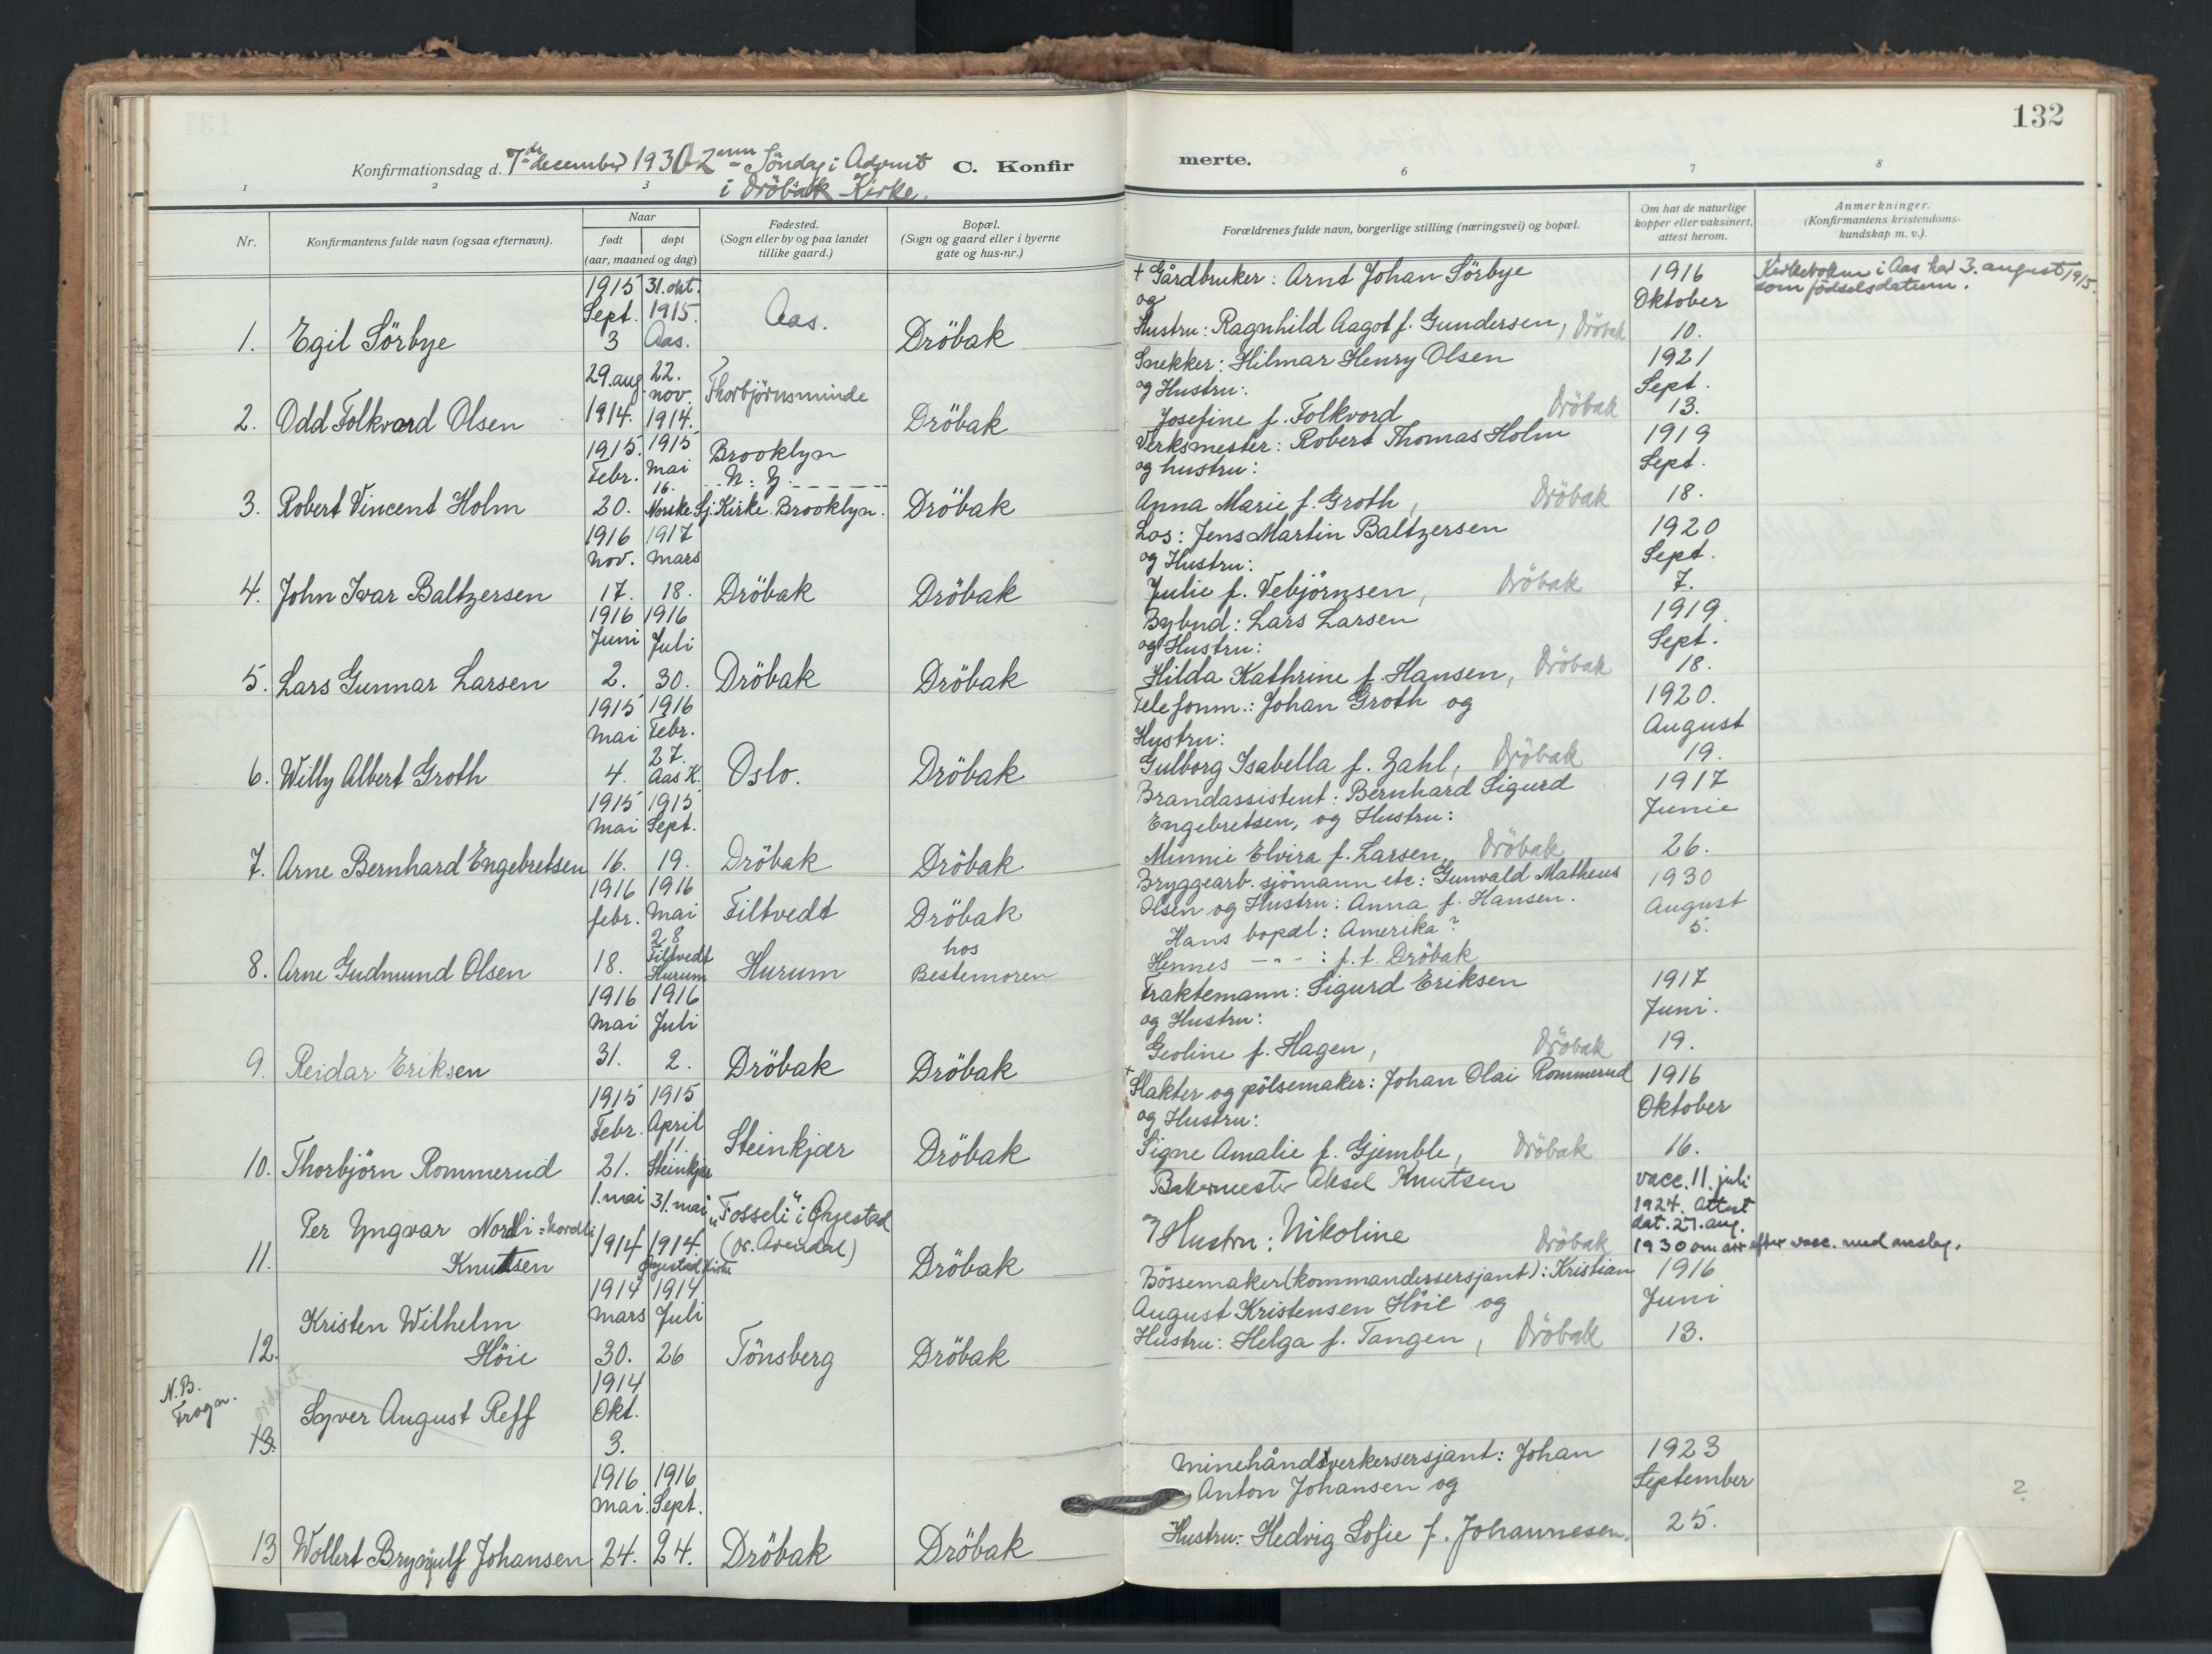 132
Konfirmationsdag d. 7de december 1930 2nen Söndag i Advent
i Dröbak Kirke.
C. Konfirmerte.
1 2 3 6 7 8
Nr.
Konfirmantens fulde navn (ogsaa efternavn).
Naar
født døpt
(aar, maaned og dag)
Fødested.
(Sogn eller by og paa landet
tillike gaard.)
Bopæl.
(Sogn og gaard eller i byerne
gate og hus-nr.)
Forældrenes fulde navn, borgerlige stilling (næringsvei) og bopæl.
Om hat de naturlige
kopper eller vaksinert,
attest herom.
Anmerkninger.
(Konfirmantens kristendoms-
kundskap m. v.).
1. Egil Sörbye
1915 Sept. 3
31. okt. 1915. Aas.
Aas.
Dröbak
+ Gårdbruker: Arnt Johan Sörbye
og
Hustru: Ragnhild Aagot f. Gundersen, Dröbak
1916
Oktober
10.
Kirkeboken i Aas har 3. august 1915.
som födselsdatum.
2. Odd Folkvard Olsen
29. aug. 1914.
22. nov. 1914.
Thorbjörnsminde
Dröbak
Snekker: Hilmar Henry Olsen
og Hustru:
Josefine f. Folkvord Dröbak
1921
Sept.
13.
3. Robert Vincent Holm
1915. Febr. 20.
1915 Mai 16.
Norske Sj. Kirke. Brooklyn.
Brooklyn
N: Y.
Dröbak
Verksmester: Robert Thomas Holm
og hustru:
Anna Marie f. Groth, Dröbak
1919
Sept.
18.
4. John Ivar Baltzersen
1916 Nov. 17.
1917 Mars 18.
Dröbak
Dröbak
Los: Jens Martin Baltzersen
og Hustru:
Julie f. Vebjörnsen, Dröbak
1920
Sept.
7.
5. Lars Gunnar Larsen
1916 Juni 2.
1916 Juli 30.
Dröbak
Dröbak
Bybud: Lars Larsen
og Hustru:
Hilda Kathrine f. Hansen, Dröbak
1919.
Sept.
18.
6. Willy Albert Groth
1915 Mai 4.
1916 Febr. 27. Aas K.
Oslo.
Dröbak
Telefonm.: Johan Groth og
Hustru:
Gulborg Isabella f. Zahl, Dröbak
1920.
August
19.
7. Arne Bernhard Engebretsen
1915 Mai 16.
1915 Sept. 19.
Dröbak
Dröbak
Brandassistent: Bernhard Sigurd
Engebretsen, og Hustru:
Minnie Elvira f. Larsen, Dröbak
1917
Junie
26.
8. Arne Gudmund Olsen
1916 febr. 18.
1916 Mai 28 Filtvedt Hurum
Filtvedt
Hurum
Dröbak
hos
Bestemoren
Bryggearb. sjömann etc: Gunvald Matheus
Olsen og Hustru: Anna f. Hansen.
Hans bopæl: Amerika?
Hennes - " - : f. t. Dröbak
1930
August
5.
9. Reidar Eriksen
1916 Mai 31.
1916 Juli 2.
Dröbak
Dröbak
Fraktemann: Sigurd Eriksen
og Hustru:
Geoline f. Hagen, Dröbak
1917
Juni.
19.
10. Thorbjörn Rommerud
1915 Febr. 21.
1915 April 11. Steinkjær
Steinkjær
Dröbak
+ Slakter og pölsemaker: Johan Olai Rommerud
og Hustru:
Signe Amalie f. Gjemble, Dröbak
1916
Oktober
16.
11. Per Yngvar Nordli = Nordli
Knutsen
1. mai 1914
31. mai 1914. Öyestad Kirke
"Fosseli" i Öyestad
(pr. Arendal)
Dröbak
Bakermester Aksel Knutsen
og Hustru: Nikoline Dröbak
vacc. 11. juli
1924. Attest
dat. 27. aug.
1930 om arr efter vacc. med anslag.
12. Kristen Wilhelm
Höie
1914 Mars 30.
1914 Juli 26
Tönsberg
Dröbak
Bössemaker (kommandersersjant): Kristian
August Kristensen Höie og
Hustru: Helga f. Tangen, Dröbak
1916
Juni
13.
N.B.
Frogn.
13. Syver August Reff
1914
Okt.
3.
13 Wollert Brynjulf Johansen
1916 Mai. 24.
1916 Sept. 24.
Dröbak
Dröbak
Minehåndtverkersersjant: Johan
Anton Johansen og
Hustru: Hedvig Sofie f. Johannesen.
1923
September
25.
?